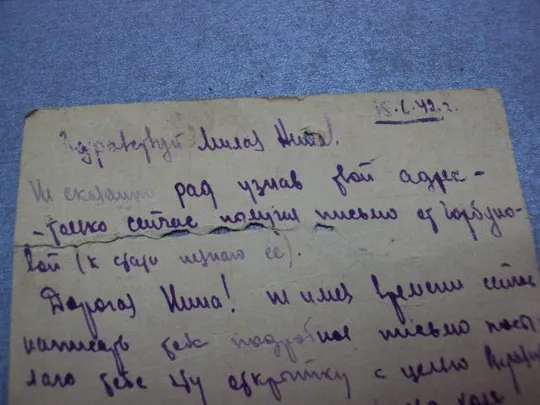 15.6.42 г.
Здравствуй Милая Нина!
Не сказанно рад узнав твой адрес -
- только сейчас получил письмо от Горбуно-
вой (к стати не знаю ее).
Дорогая Нина! не имея времени сейчас
написать тебе подробное письмо посы-
лаю тебе эту открытку с целью